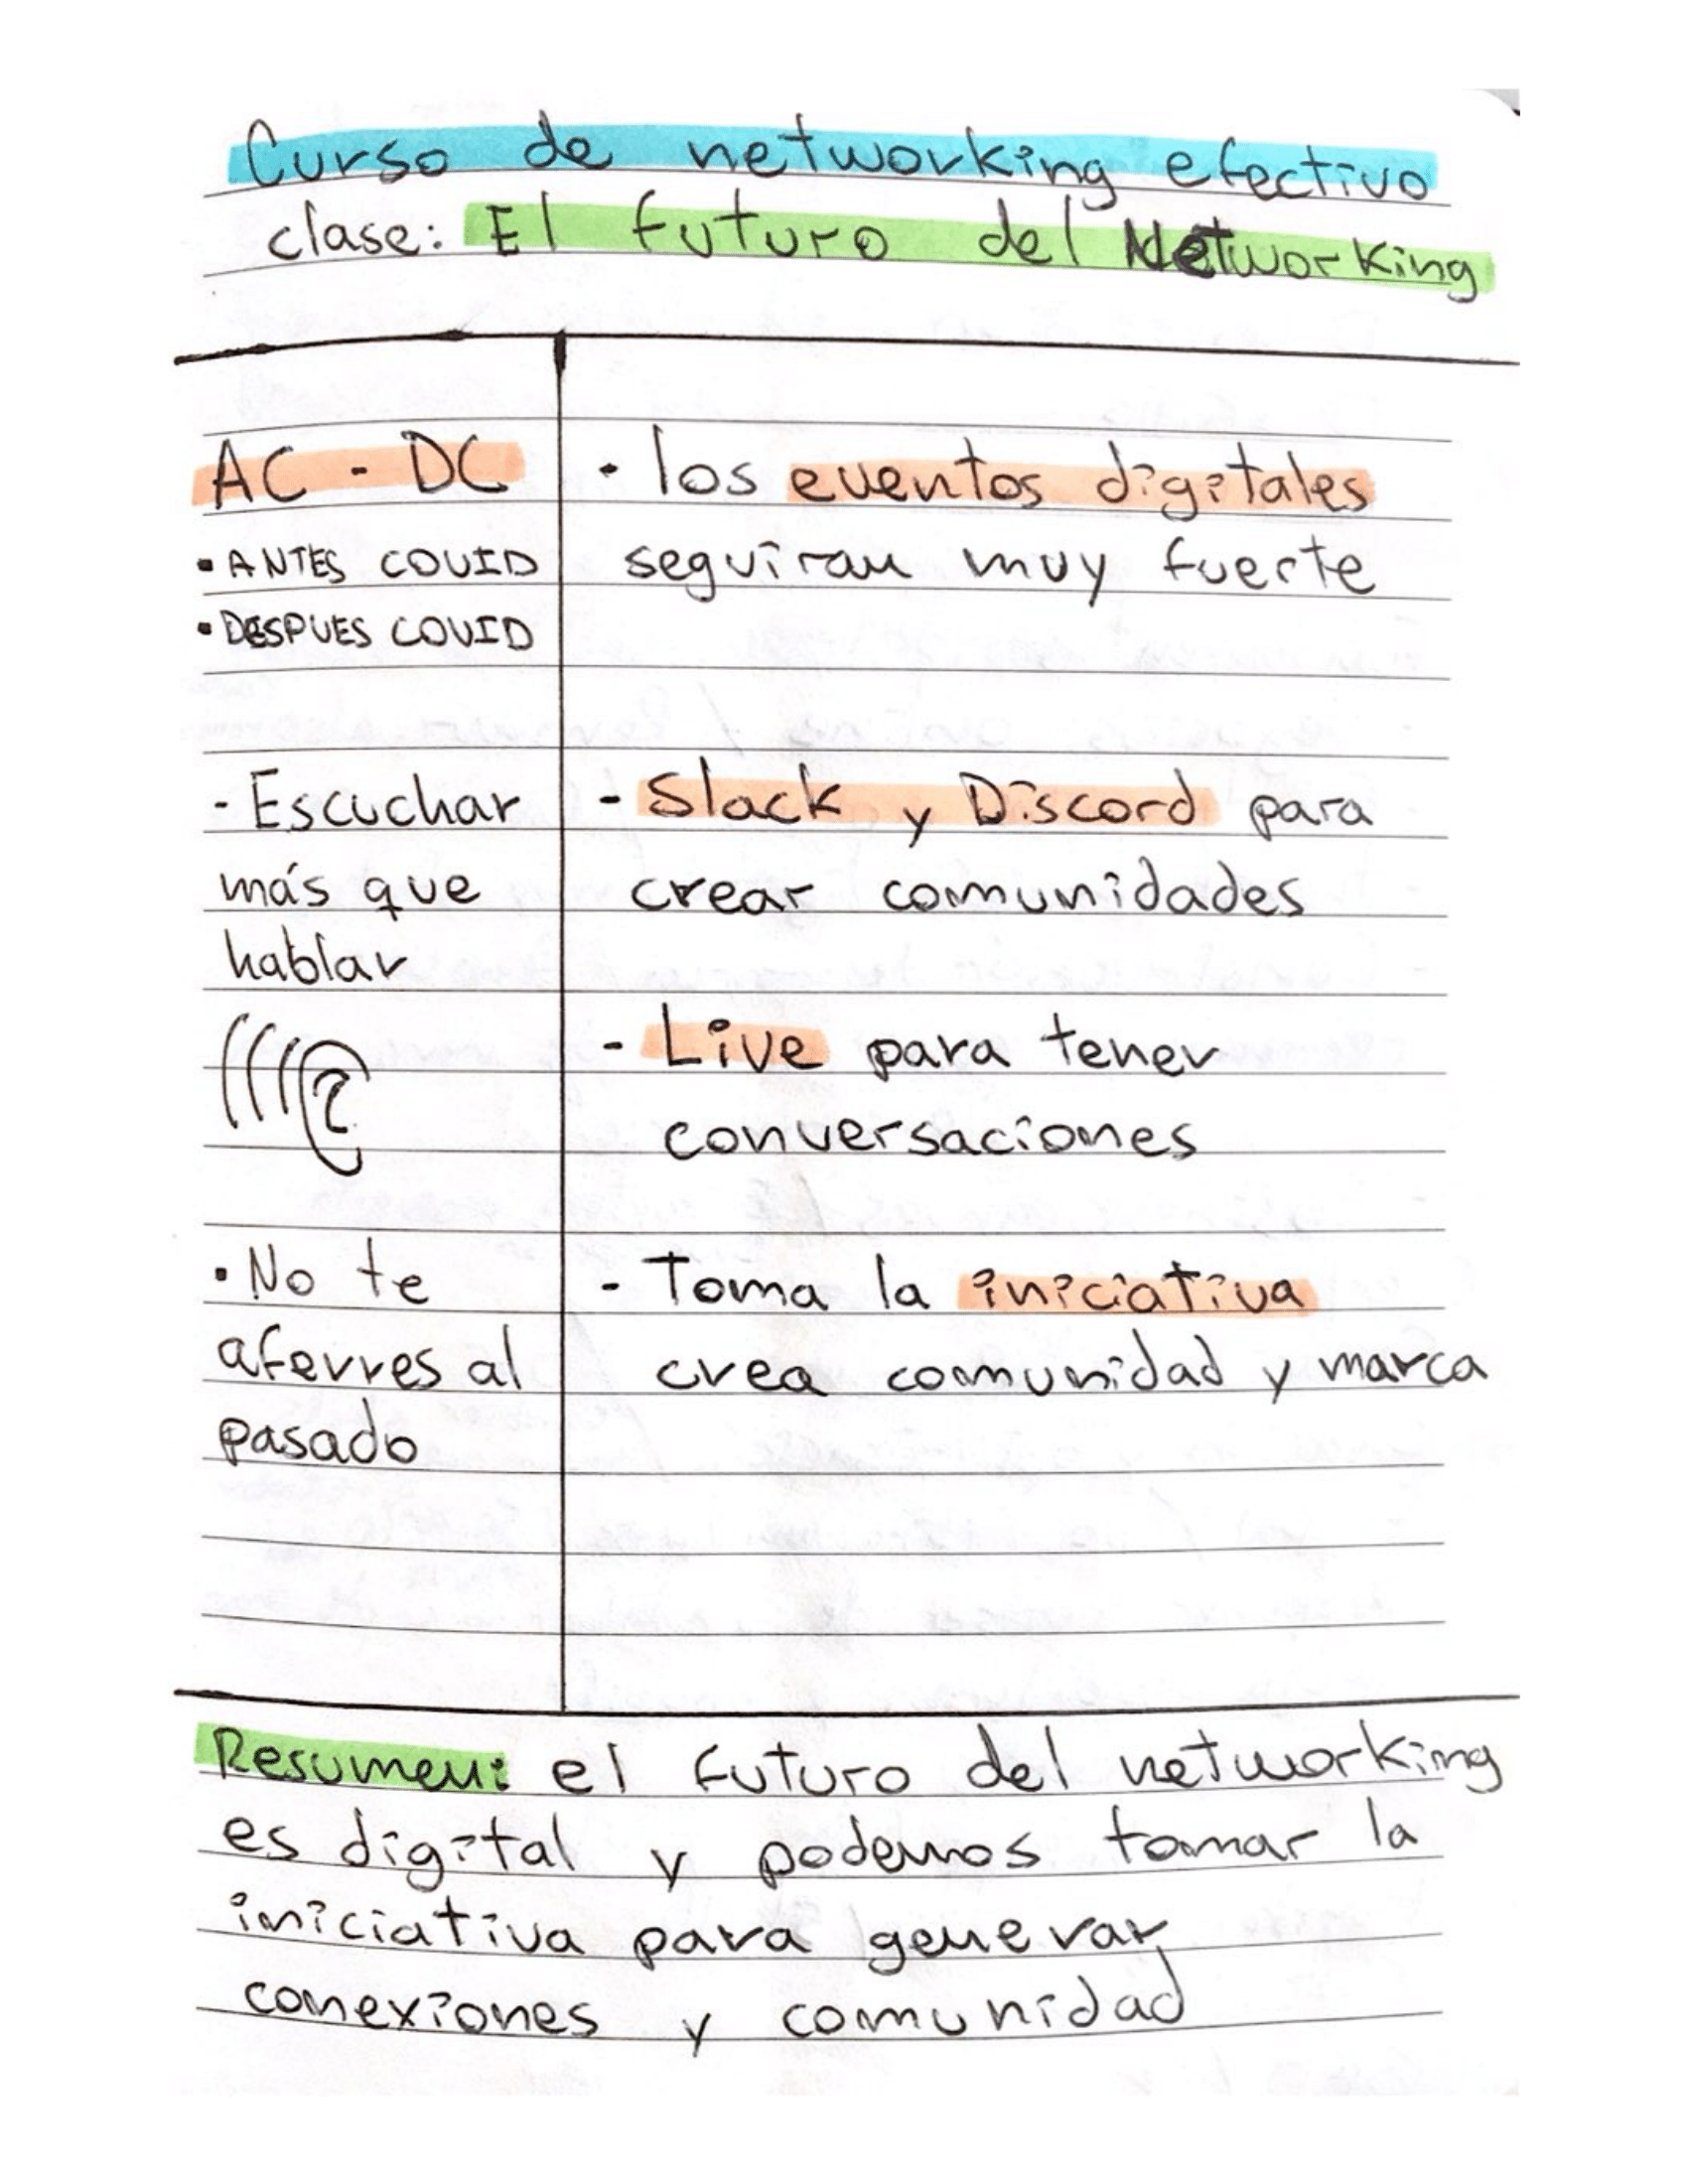 Curso de networking efectivo
clase: El futuro del Networking
AC - DC
• ANTES COVID
• DESPUES COVID
- Escuchar
más que
hablar
• No te
aferres al
pasado
• los eventos digitales
seguiran muy fuerte
- Slack y Discord para
crear comunidades
- Live para tener
conversaciones
- Toma la iniciativa
crea comunidad y marca
Resumen: el futuro del networking
es digital y podemos tomar la
iniciativa para generar
conexiones y comunidad